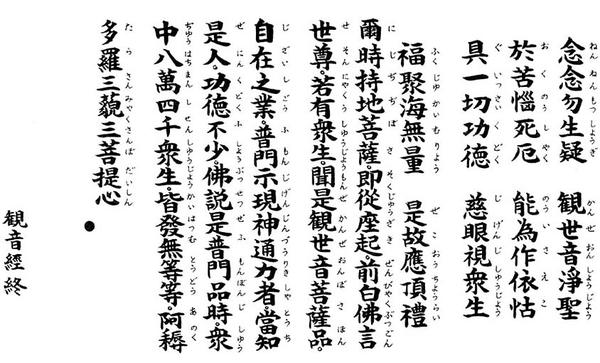 念念勿生疑　観世音淨聖
於苦惱死厄　能為作依怙
具一切功德　慈眼視衆生
福聚海無量　是故應頂禮
爾時持地菩薩。即從座起。前白佛言
世尊。若有衆生。聞是観世音菩薩品。
自在之業。普門示現神通力者。當知
是人。功德不少。佛説是普門品時。衆
中八萬四千衆生。皆發無等等。阿耨
多羅三藐三菩提心
観音經終